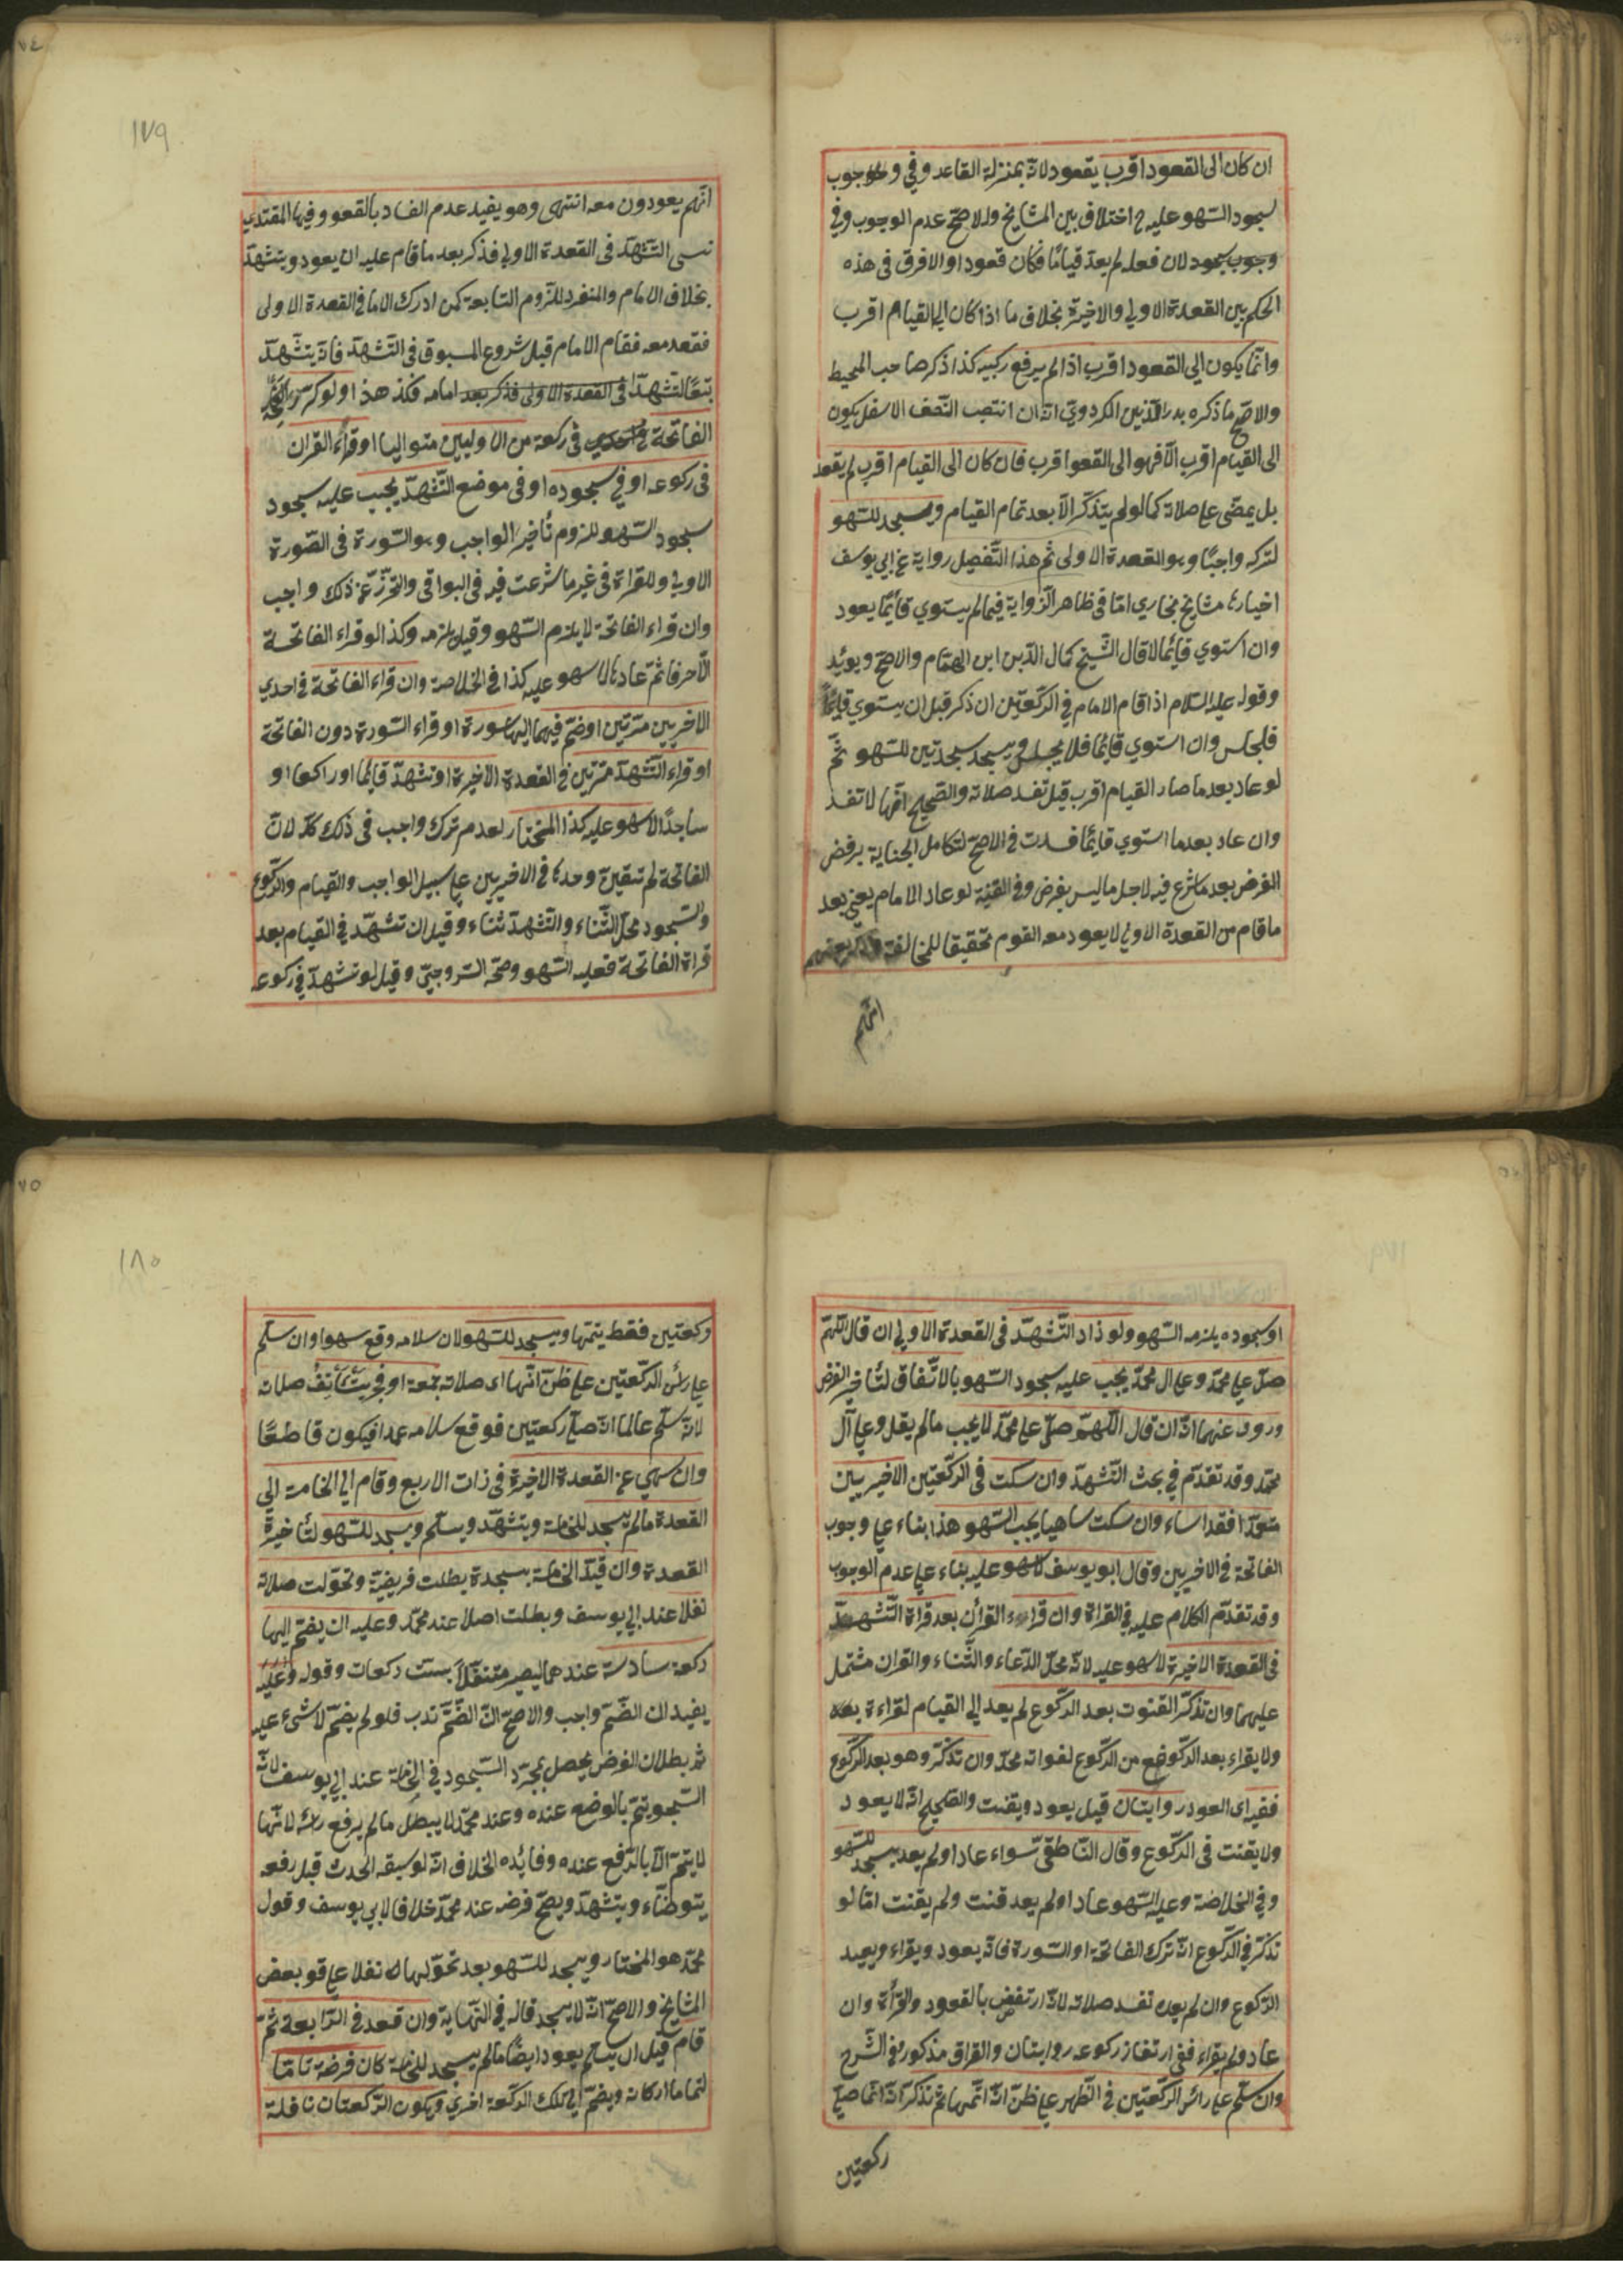 ان كان الى القعود اقرب يقعود لانه بمنزلة القاعد وفي وجوب
سجود السهو عليه ح اختلاف بين المشايخ والاصح عدم الوجوب وفي
وجوب سجود لان فعله لم يعد قيامًا فكان قعودا والافرق في هذه
الحكم بين القعدة الاولي والاخيرة بخلاف ما اذا كان الي القيام اقرب
وانما يكون الي القعود اقرب اذا لم يرفع ركبيه كذا ذكر صاحب المحيط
والاصح ما ذكره بدر الدين الكردويّ انه ان انتصب النصف الاسفل يكون
الى القيام اقرب الّا فهو الى القعو اقرب فان كان الى القيام اقرب لم يقعد
بل يمضى علي صلاته كما لو لم يتذكر الّا بعد تمام القيام ويسجد للسهو
لتركه واجبًا وهو القعدة الاولى ثم هذا التفصل رواية عن ابي يوسف
اختارها مشايخ بخاري امّا في ظاهر الرواية فيما لم يستوي قائمًا يعود
وان استوي قائمًا لا قال الشيخ كمال الدين ابن الهمام والاصح ويوئد
وقوله عليه السلام اذا قام الامام في الركعتين ان ذكر قبل ان يستوي قائمًا
فليجلس وان استوي قائمًا فلا يجلس ويسجد سجدتين للسهو ثم
لو عاد بعد ما صار القيام اقرب قيل تفسد صلاته والصحيح انها لا تفسد
وان عاد بعد ما استوي قائمًا فسدت في الاصح لتكامل الجناية برفض
الفرض بعد ما شرع فيه لاجل ما ليس بفرض وفي القنية لو عاد الامام يعني بعد
ما قام من القعدة الاولي لا يعود معه القوم تحقيقا للمخالفة
انهم
١٧٩
٧٤
انهم يعودون معه انتهى وهو يفيد عدم الفساد بالقعو وفيها المقتدي
نسي التشهد في القعدة الاولي فذكر بعد ما قام عليه ان يعود ويتشهد
بخلاف الامام والمنفرد للزوم التابعة كمن ادرك الاما في القعدة الاولى
فقعد معه فقام الامام قبل شروع المسبوق في التشهد فانه يتشهد
تبعًا لتشهد في القعدة الاولى فذكر بعد امامه فكذ هذا ولو كرر
الفاتحة في ركعة من الاوليين متواليا او قراء القران
في ركوعه او في سجوده او في موضع التشهد يجب عليه سجود
سجود السهو للزوم تأخير الواجب وهو السورة في الصورة
الاولي وللقراة في غير ما شرعت فيه في البواقي والتحرز عن ذلك واجب
وان قراء الفاتحة لا يلزم السهو وقيل يلزمه وكذا لو قراء الفاتحة
الّا حرفا ثم عادها لا سهو عليه كذا في الخلاصة وان قراء الفاتحة في احدي
الاخريين مرتين او ضمّ فيهما اليها سورة او قراء السورة دون الفاتحة
او قراء التشهد مرتين في القعدة الاخيرة او تشهد قائما او راكعا او
ساجدًا لا سهو عليه كذا المختار لعدم ترك واجب في ذلك كله لان
الفاتحة لم تتعين وحدها في الاخيريين علي سبيل الواجب والقيام والركوع
والسجود محل الثناء والتشهد ثناء وقيل ان تشهد في القيام بعد
قراة الفاتحة فعليه السهو وصحّه السروجيّ وقيل لو تشهد في ركوعه
او سجوده يلزمه السهو ولو ذاد التشهد في القعدة الاولي ان قال اللهم
صلّ علي محمد وعلي ال محمد يجب عليه سجود السهو بالاتفاق لتأخير الفرض
وروي عنهما انه ان قال اللهم صلّ علي محمد لا يجب ما لم يقل وعلي آل
محمد وقد تقدّم في بحث التشهد وان سكت في الركعتين الاخيريين
متعمدا فقد اساء وان سكت ساهيا يجب السهو هذا بناء علي وجوب
الفاتحة في الاخريين وقال ابو يوسف لا سهو عليه بناء علي عدم الوجوب
وقد تقدّم الكلام عليه في القراة وان قراء القرأن بعد قراة التشهد
في القعدة الاخيرة لا سهو عليه لانه محل الدعاء والثناء والقران مشتمل
عليهما وان تذكر القنوت بعد الركوع لم يعد الي القيام لقراءة
ولا يقراء بعد الركوع لفواته محله وان تذكر وهو بعد الركوع
ففي اى العود روايتان قيل يعود ويقنت والصحيح انه لا يعود
ولا يقنت في الركوع وقال الناطقيّ سواء عاد او لم يعد يسجد للسهو
وفي الخلاصة وعليه السهو عاد او لم يعد قنت ولم يقنت امّا لو
تذكر في الركوع انه ترك الفاتحة او السورة فانه يعود ويقراء ويعيد
الركوع وان لم يعده تفسد صلاته لانه ارتفض بالقعود والقرأة وان
عاد ولم يقراء ففي ارتفاز ركوعه روايتان والفراق مذكور في الشرح
وان سلّم علي رأس الركعتين في الظهر علي ظنّ انه اتمها ثم تذكر انه انما صلي
ركعتين
١٨٠
٧٥
وكعتين فقط يتمها ويسجد للسهو لان سلامه وقع سهوا وان سلّم
علي رأس الركعتين علي ظنّ انها اى صلاته جمعة او فجر يستأنف صلاته
لانه سلم عالما انه صلي ركعتين فوقع سلامه عمدا فيكون قاطعًا
وان سهي عن القعدة الاخيرة في ذات الاربع وقام الي الخامسة الي
القعدة ما لم يسجد للخامسة ويتشهد ويسلم ويسجد للسهو لتأخيره
القعدة وان قيد الخامسة بسجدة بطلت فريضية وتحوّلت صلاته
نفلا عند ابي يوسف وبطلت اصلا عند محمد وعليه ان يضمّ اليها
ركعة سادسة عندهما ليصير متنفلاً بست ركعات وقوله وعليه
يفيد ان الضمّ واجب والاصح انّ الضمّ ندب فلو لم يضمّ لا شئ عليه
ثم بطلان الفرض يحصل بمجرّد السجود في الخامسة عند ابي يوسف لانه
السجو يتم بالوضع عنده وعند محمد لا يبطل ما لم يرفع رأسه لانها
لا يتم الّا بالرفع عنده وفائده الخلاف انه لو سبقه الحدث قبل رفعه
يتوضاء ويتشهد ويصح فرضه عند محمد خلافا لابي يوسف وقول
محمد هو المختار ويسجد للسهو بعد تحوّلها نفلا علي قو بعض
المشايخ والاصح انه لا يسجد قاله في النهاية وان قعد في الرابعة ثم
قام قبل ان يسلم يعود ايضًا ما لم يسجد للخامسة كان فرضه تامّا
لتمام اركانه ويضمّ الي تلك الركعة اخري ويكون الركعتان نافلة